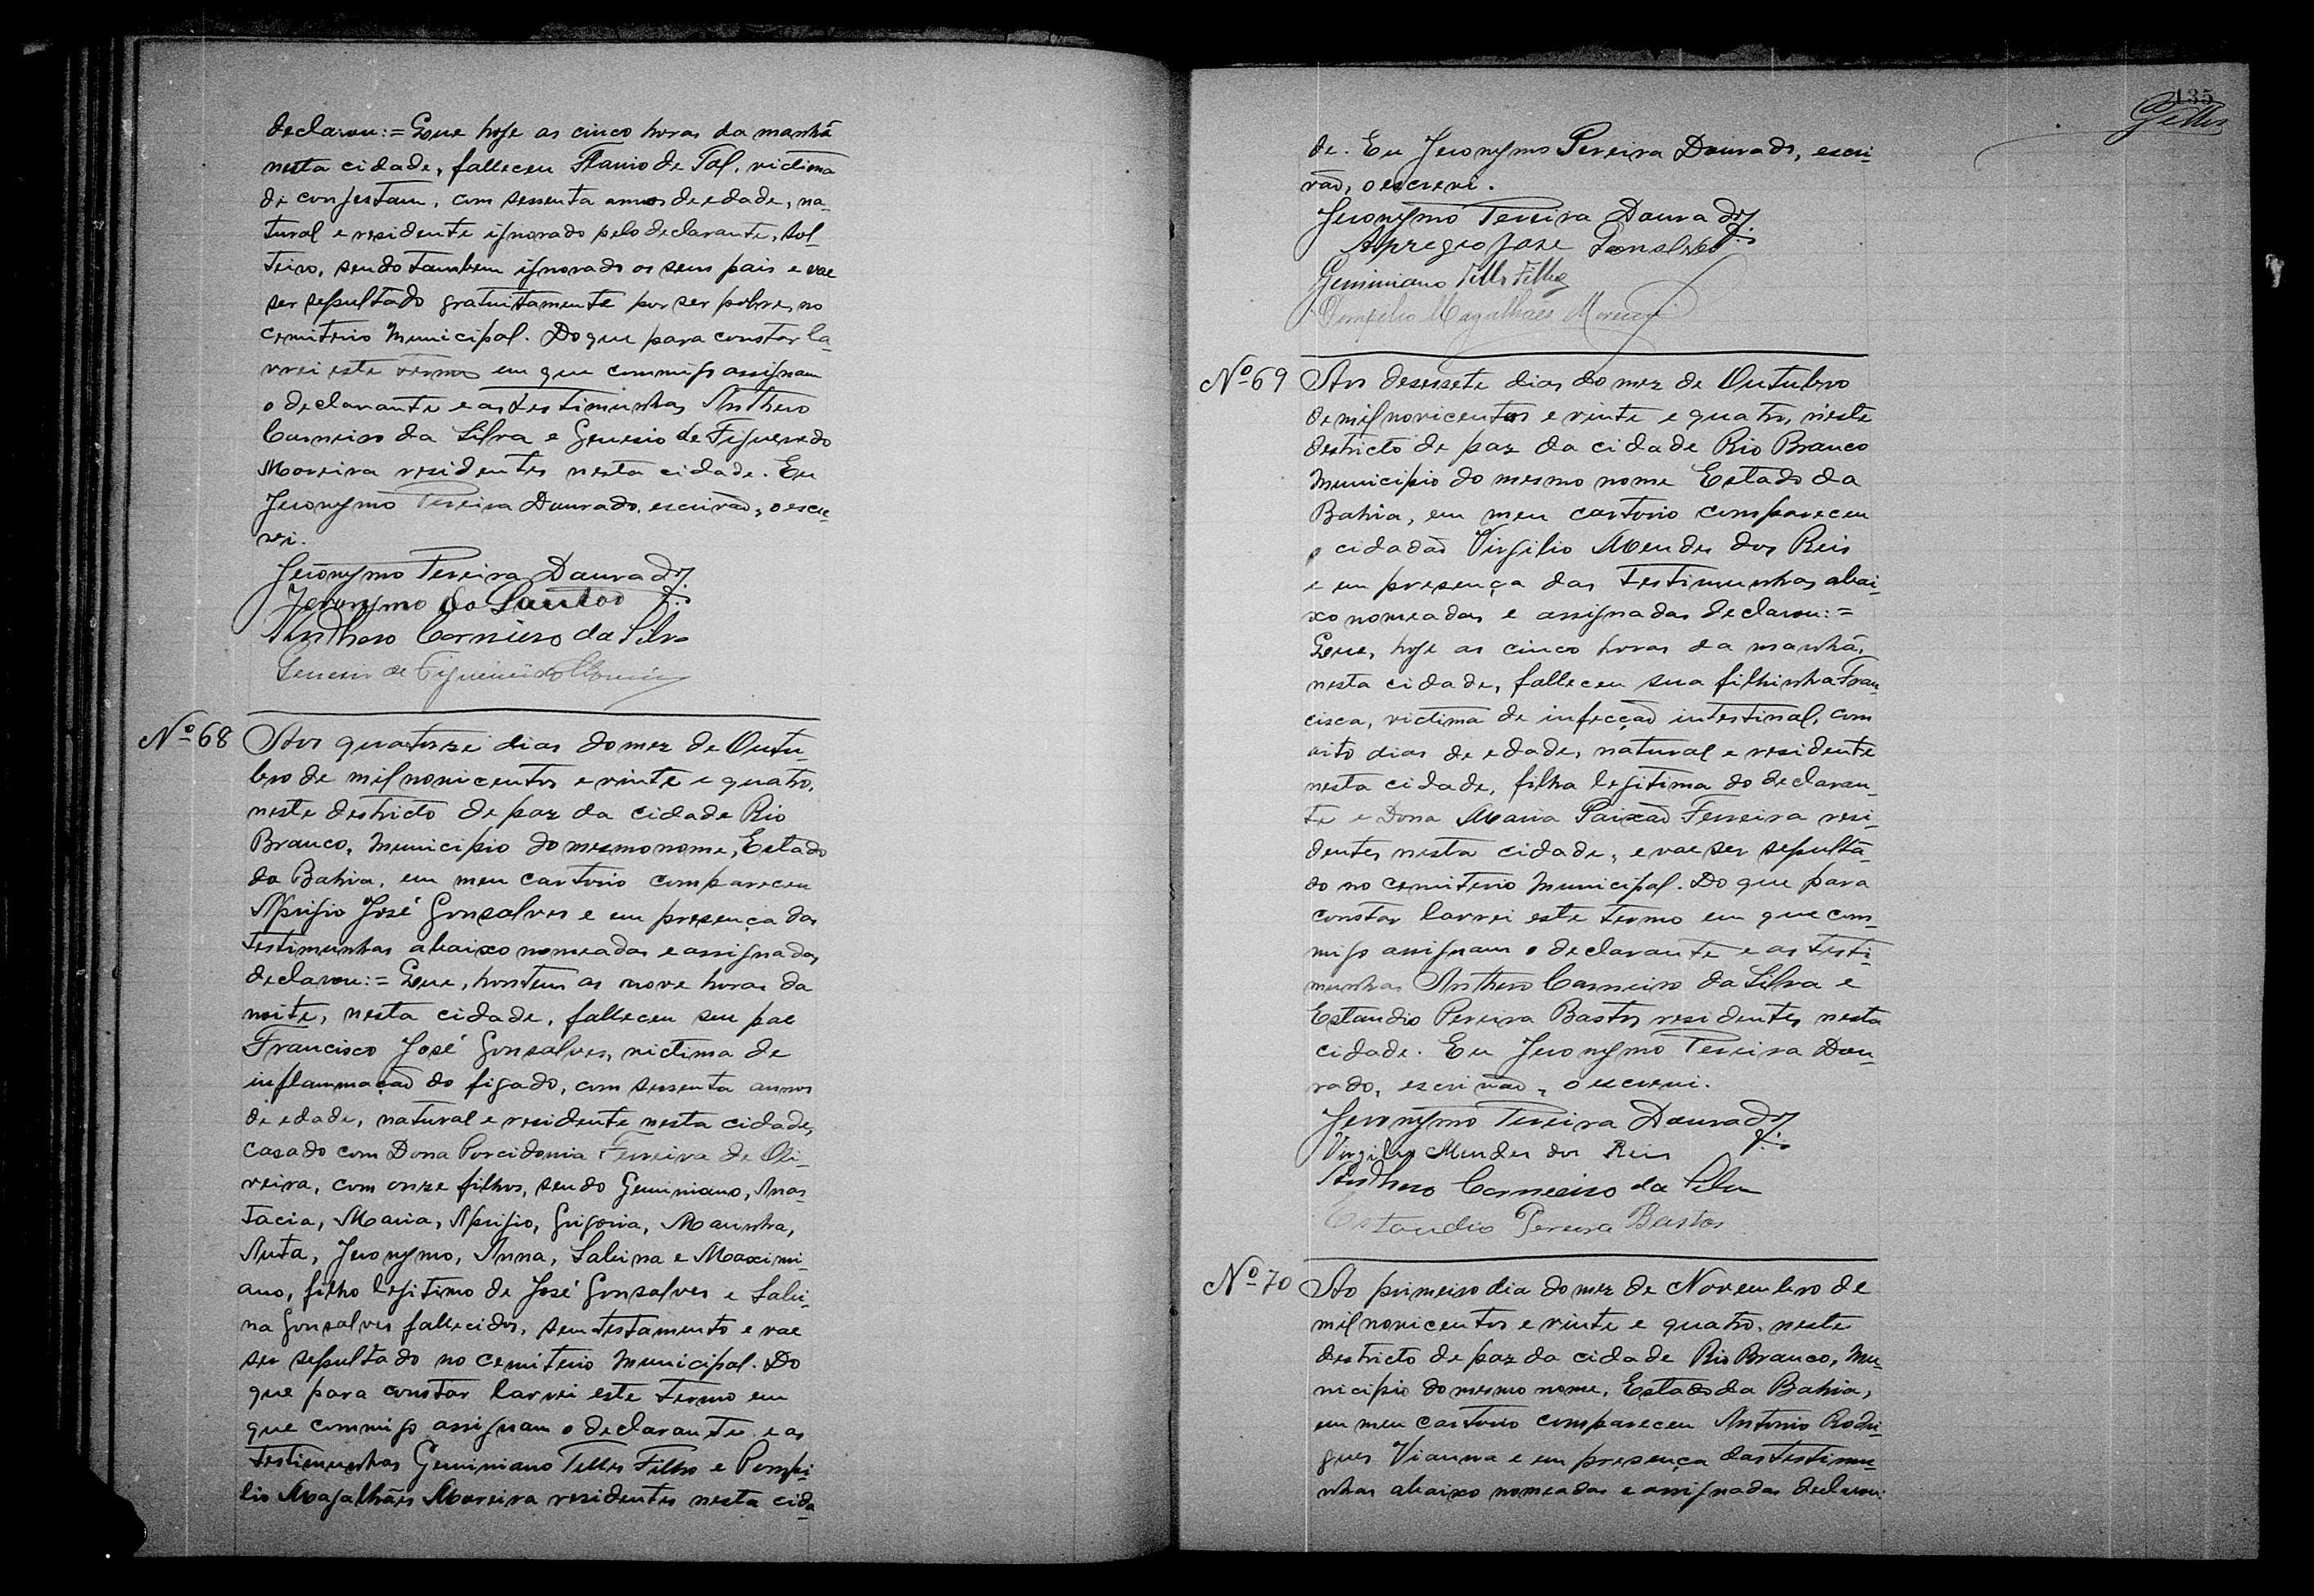 declarou:= Que hoje as cinco horas da manhã
nesta cidade, falleceu Flavio de Tal, victima
de congestam, com sessenta annos de edade, na-
tural e residente ignorado pelo declarante, sol-
teiro, sendo tambem ignorado os seus pais e vae
ser sepultado gratuitamente por ser pobre, no
cemiterio Municipal. Do que para constar la-
vrei este termo em que commigo assignam
o declarante e as testimunhas Anthero
Carneiro da Silva e Genesio de Figueredo
Moreira residentes nesta cidade. Eu
Jeronymo Pereira Dourado, escrivão, o escre-
vi.
Jeronymo Pereira Dourado
Jeronymo do Santos
Anthero Carneiro da Silva
Genesio de Figueiredo Moreira
Nº 68 Aos quatorze dias do mez de Outu-
bro de mil novicentos e vinte e quatro,
neste destricto de paz da cidade Rio
Branco, Municipio do mesmo nome, Estado
da Bahia, em meu cartorio compareceu
Aprigio José Gonsalves e em presença das
testimunhas abaixo nomeadas e assignadas,
declarou:= Que, hontem as nove horas da
noite, nesta cidade, falleceu seu pae
Francisco José Gonsalves, victima de
inflammação do figado, com sessenta annos
de edade, natural e residente nesta cidade,
casado com Dona Porcidonia Ferreira de Oli-
veira, com onze filhos, sendo Geminiano, Anas-
tacia, Maria, Aprigio, Grigoria, Marinha,
Anta, Jeronymo, Anna, Sabina e Maximi-
ano, filho legitimo de José Gonsalves e Sabi-
na Gonsalves fallecidos, sem testamento e vae
ser sepultado no cemiterio Municipal. Do
que para constar lavrei este termo em
que commigo assignam o declarante e as
testimunhas Geminiano Telles Filho e Pompi-
lio Magalhães Moreira residentes nesta cida-
135
Telles
de. Eu Jeronymo Pereira Dourado, escri-
vão, o escrevi.
Jeronymo Pereira Dourado
Apregio Jose Gonsalves
Geminiano Telles Filho
Pompilio Magalhães Moreira
Nº 69 Aos desessete dias do mez de Outubro
de mil novicentos e vinte e quatro, neste
destricto de paz da cidade Rio Branco
Municipio do mesmo nome Estado da
Bahia, em meu cartorio compareceu
o cidadão Virgilio Mendes dos Reis
e em presença das testimunhas abai-
xo nomeadas e assignadas declarou:=
Que, hoje as cinco horas da manhã,
nesta cidade, falleceu sua filhinha Fran-
cisca, victima de infecção intestinal, com
oito dias de edade, natural e residente
nesta cidade, filha legitima do declaran-
te e Dona Maria Paixão Ferreira resi-
dentes nesta cidade, e vae ser sepulta-
do no cemiterio Municipal. Do que para
constar lavrei este termo em que com-
migo assignam o declarante e as testi-
munhas Anthero Carneiro da Silva e
Estaudio Pereira Bastos residentes nesta
cidade. Eu Jeronymo Pereira Dou-
rado, escrivão, o escrevi.
Jeronymo Pereira Dourado
Virgilio Mendes dos Reis
Anthero Carneiro da Silva
Estaudio Pereira Bastos
Nº 70 Ao primeiro dia do mez de Novembro de
mil novicentos e vinte e quatro, neste
destricto de paz da cidade Rio Branco, Mu-
nicipio do mesmo nome, Estado da Bahia,
em meu cartorio compareceu Antonio Rodri-
gues Vianna e em presença das testimu-
nhas abaixo nomeadas e assignadas declarou: